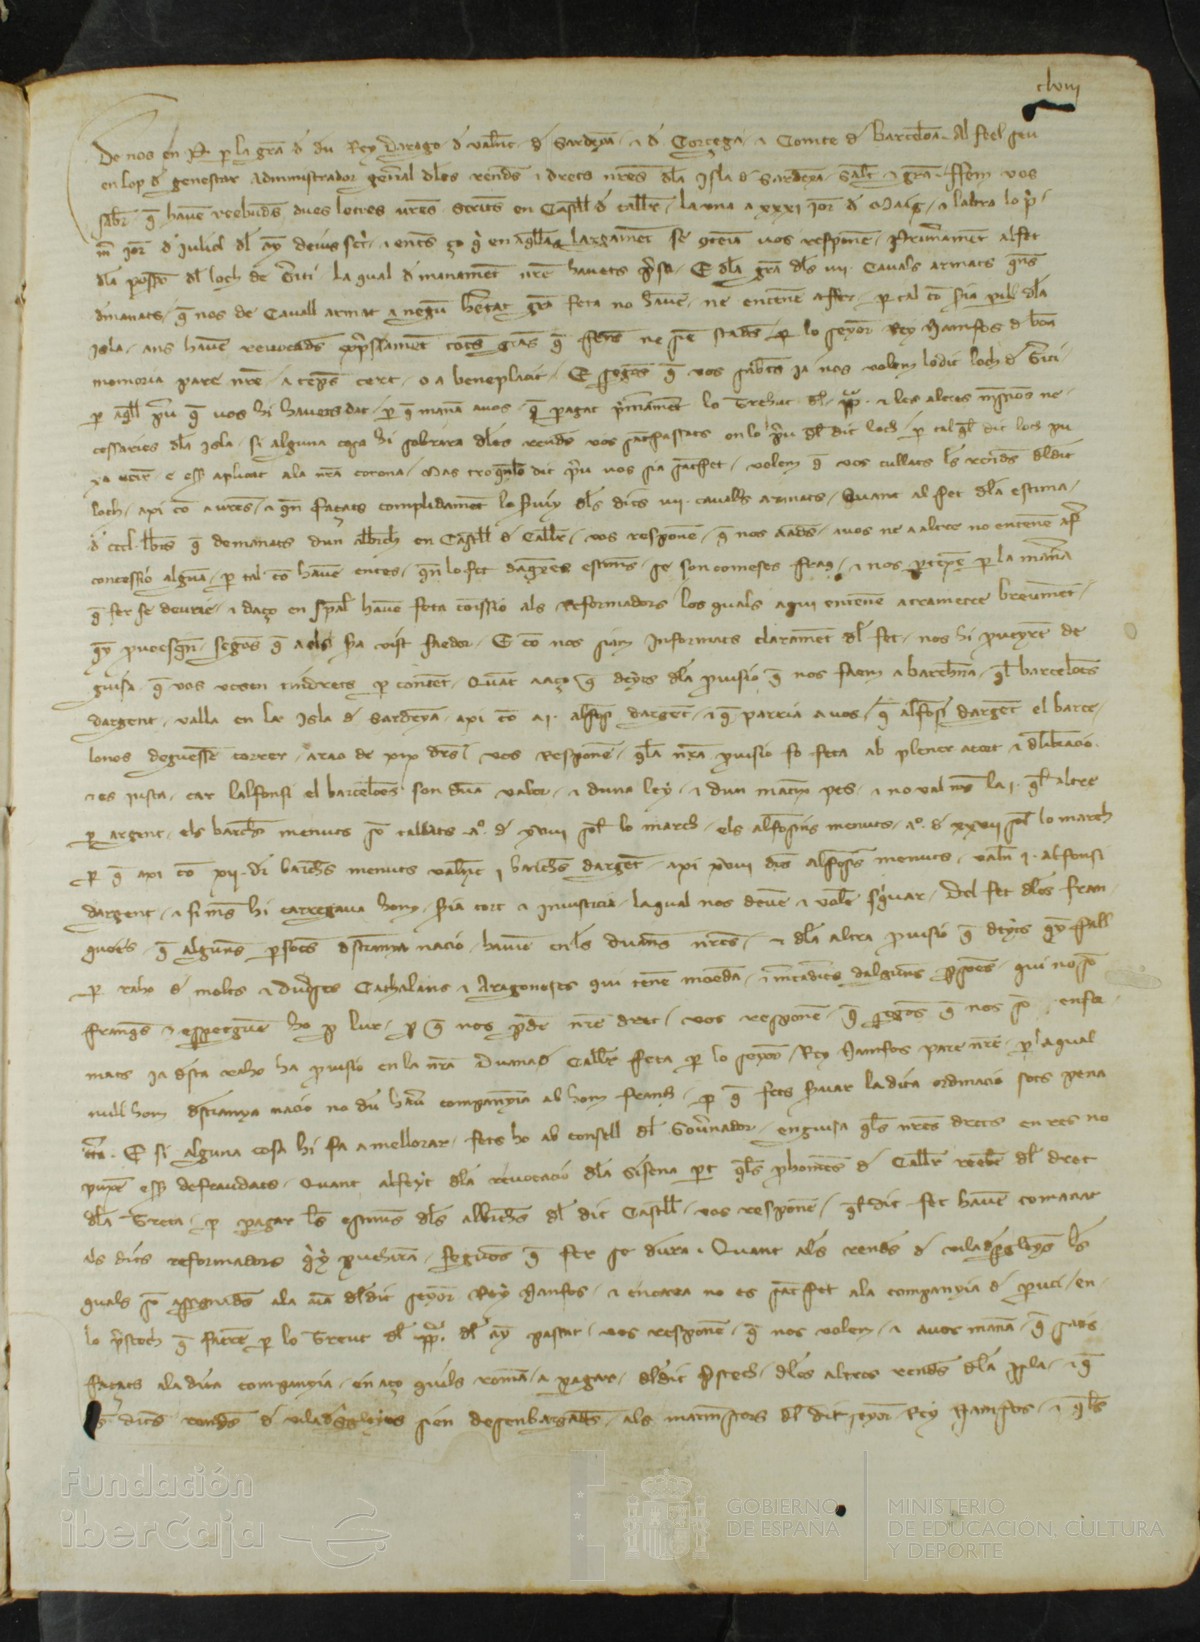 clviii
De nos en P. per la gra de deu Rey Darago de valenc. de Sardeya. e de Corcega. e Comte de barcelona. Al feel seu
en lop de genestar Administrador general dels rends e drets nres dla Isla de Sardeya. Salt e gra. ffem vos
saber que havem reebudes dues letres vres. scrites en Castell de caller. la una a xxxi jor de Maig. e laltra lo pri
mer jor de Juliol del ay deius scrit. entes ço que en aqlla largament se conten vos responem. Primerament al fet
dla possessio del loch de la qual de manament nre havets presa. E dla gra dels iiii. Cavals armats quens
demanats. que nos de Cavall armat a negun heretat gra feta no havem. ne entenem a ffer. per tal com seria perill dla
Isla. ans havem revocades expressament totes gracies que fetes ne sien stades per lo senyor Rey Namfos de bona
memoria pare nre. a temps cert. o a beneplacit. E segons que vos sabets ja nos volem lo dit loch de
per aqll preu que vos hi havets dat. per que manam avos. que pagat primerament lo Trehut del papa. e les altres messions ne
cessaries dla Isla. si alguna coça hi sobrara dels rends vos satisfassats on lo preu del dit loch. per tal quel dit loch pu
xa venir e esser aplicat ala nra corona. Mas tro quel dit preu vos sia satisfet. volem que vos cullats les rends del dit
loch. axi com a vres. e quen façats complidament lo serviy dels dits iiii. cavalls armats. Quant al fet dla estima
de cccl. lbrs que demanats dun alberch en Castell de Caller. vos responem. que nos adads. avos ne a altre no entenem a fer
concessio alguna. per tal com havem entes. quen lo fet daqxes estims. se son comeses fraus. e nos proceyem per la manera
que fer se deuria. e daço en special havem feta comissio als Reformadors. los quals aqui entenem a trametre breument.
quey procesquen. segons que a els sera vist faedor. E com nos siam informats clarament del fet. nos hi proveyrem de
guisa. que vos vosen tindrets per content. Quant a aço que deyts dla provisio que nos faem a barchna. quel barcelones
dargent. valla en la Isla de Sardeya. axi com a i. alfonsi dargent. e que parria a vos. que alfonsi dargent el barce
lones degues correr. a rao de xix drs. vos Responem. qla nra provisio fo feta ab plener acort e dlibracio.
e es justa. car lalfonsi el barcelones son duna valor. e duna ley. e dun mateix pes. e no val mes la i. quel altre
per argent. els barchs menuts so tallats a. de xviii sol. lo march. els alfonsins menuts. a. de xxvii sol lo march
per que axi com xii. dr barchs menuts valen i barchs dargent. axi xviii drs alfonsis menuts. valen i. alfonsi
dargent. e si mes hi carregava hom. seria tort e Injusticia. laqual nos devem e volem squivar. Del fet dels fran
quets. que alguns persones dstranya nacio. havem en les duanes nres. e dla altra provisio que deyts quey ffall
per raho de molts e diverses Cathalans e Aragoneses qui tenen moneda. e mercaderies dalguns persones. qui no so
franqs. e espeeguen ho per lur. per que nos perdem nre dret. vos responem. que segons que nos so enfor
mats ja dsta raho ha provisio en la nra Duana de Caller feta per lo senyor Rey Namfos pare nre. per laqual
null hom dstranya nacio no deu haver companyia ab hom franch. per que fets servar la dita ordinacio sots pena
certa. E si alguna cosa hi fa a mellorar. fets ho ab consell del Governador. en guisa quels nres drets en res no
puxen esser defraudats. Quant al feyt dla revocacio dla sisena part quels prohomens de Caller reeben del dret
dla Treta. per pagar les estimes dels alberchs del dit Castell. vos responem. quel dit fet havem comanat
als dits reformadors quey provehiran. segons que fer se diura. Quant als rends de viladesgleyes les
quals so assignads ala ma del dit senyor Rey Namfos. e encara no es satisfet ala companyia de peruci. en
lo prestech que faeren per lo Treut del papa. del ay passat. vos responem. que nos volem. e avos manam. que gaos
façats ala dita companyia. en aço quels roman a pagar. del dit prestech. dels altres rends dla Isla. e que
les dits rends de viladesgleyes sien desenbargads. als marmessors del dit senyor Rey Namfos. e quels
Fundación
iberCaja
GOBIERNO
DE ESPAÑA
MINISTERIO
DE EDUCACIÓN, CULTURA
Y DEPORTE